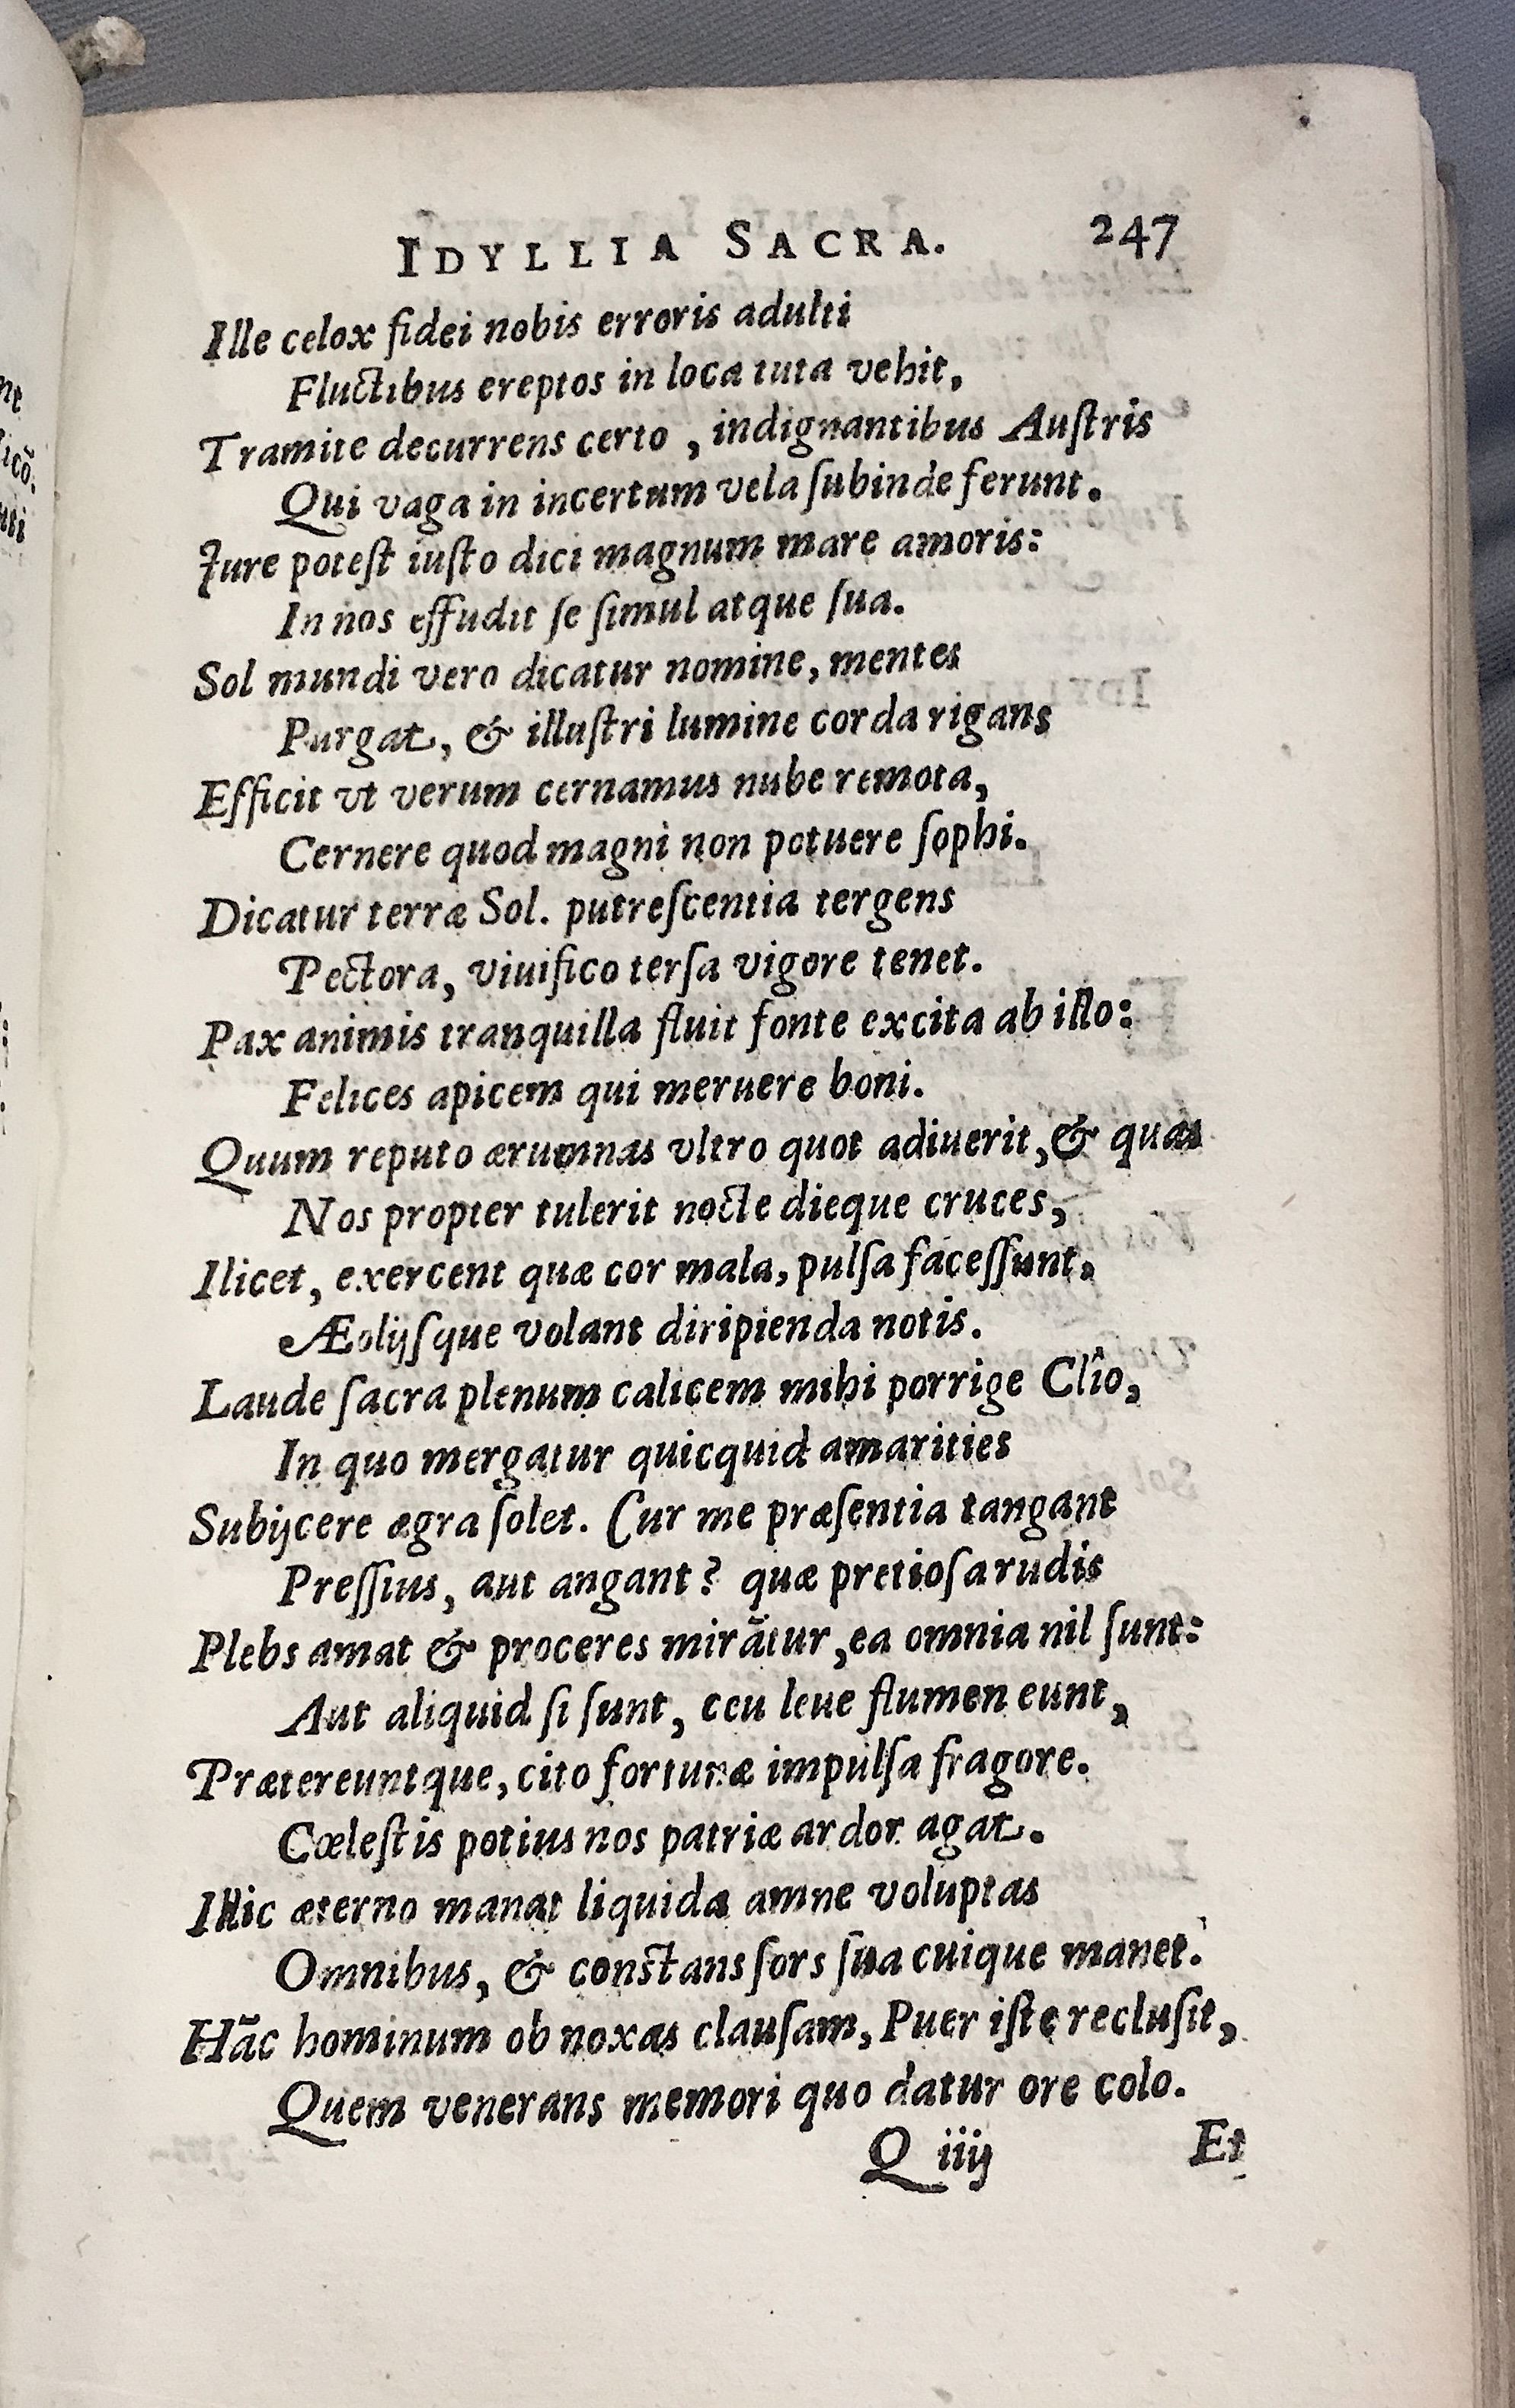 IDYLLIA SACRA. 247
Ille celox fidei nobis erroris adulti
Fluctibus ereptos in loca tuta vehit,
Tramite decurrens certo, indignantibus Auſtris
Qui vaga in incertum vela ſubinde ferunt.
Jure poteſt iuſto dici magnum mare amoris:
In nos effudit ſe ſimul atque ſua.
Sol mundi vero dicatur nomine, mentes
Purgat, & illuſtri lumine corda rigans
Efficit vt verum cernamus nube remota,
Cernere quod magni non potuere ſophi.
Dicatur terræ Sol. putreſcentia tergens
Pectora, viuifico terſa vigore tenet.
Pax animis tranquilla fluit fonte excita ab illo:
Felices apicem qui meruere boni.
Quum reputo ærumnas vltro quot adiuerit, & quas
Nos propter tulerit nocte dieque cruces,
Ilicet, exercent quæ cor mala, pulſa faceſſunt,
Æolijſque volant diripienda notis.
Laude ſacra plenum calicem mihi porrige Clîo,
In quo mergatur quicquid amarities
Subijcere ægra ſolet. Cur me præſentia tangant
Preſſius, aut angant? quæ pretioſa rudis
Plebs amat & proceres mirãtur, ea omnia nil ſunt:
Aut aliquid ſi ſunt, ceu leue flumen eunt,
Prætereuntque, cito fortunæ impulſa fragore.
Cœleſtis potius nos patriæ ardor agat.
Illic æterno manat liquida amne voluptas
Omnibus, & conſtans ſors ſua cuique manet.
Hãc hominum ob noxas clauſam, Puer iſte recluſit,
Quem venerans memori quo datur ore colo.
Q iiij Et